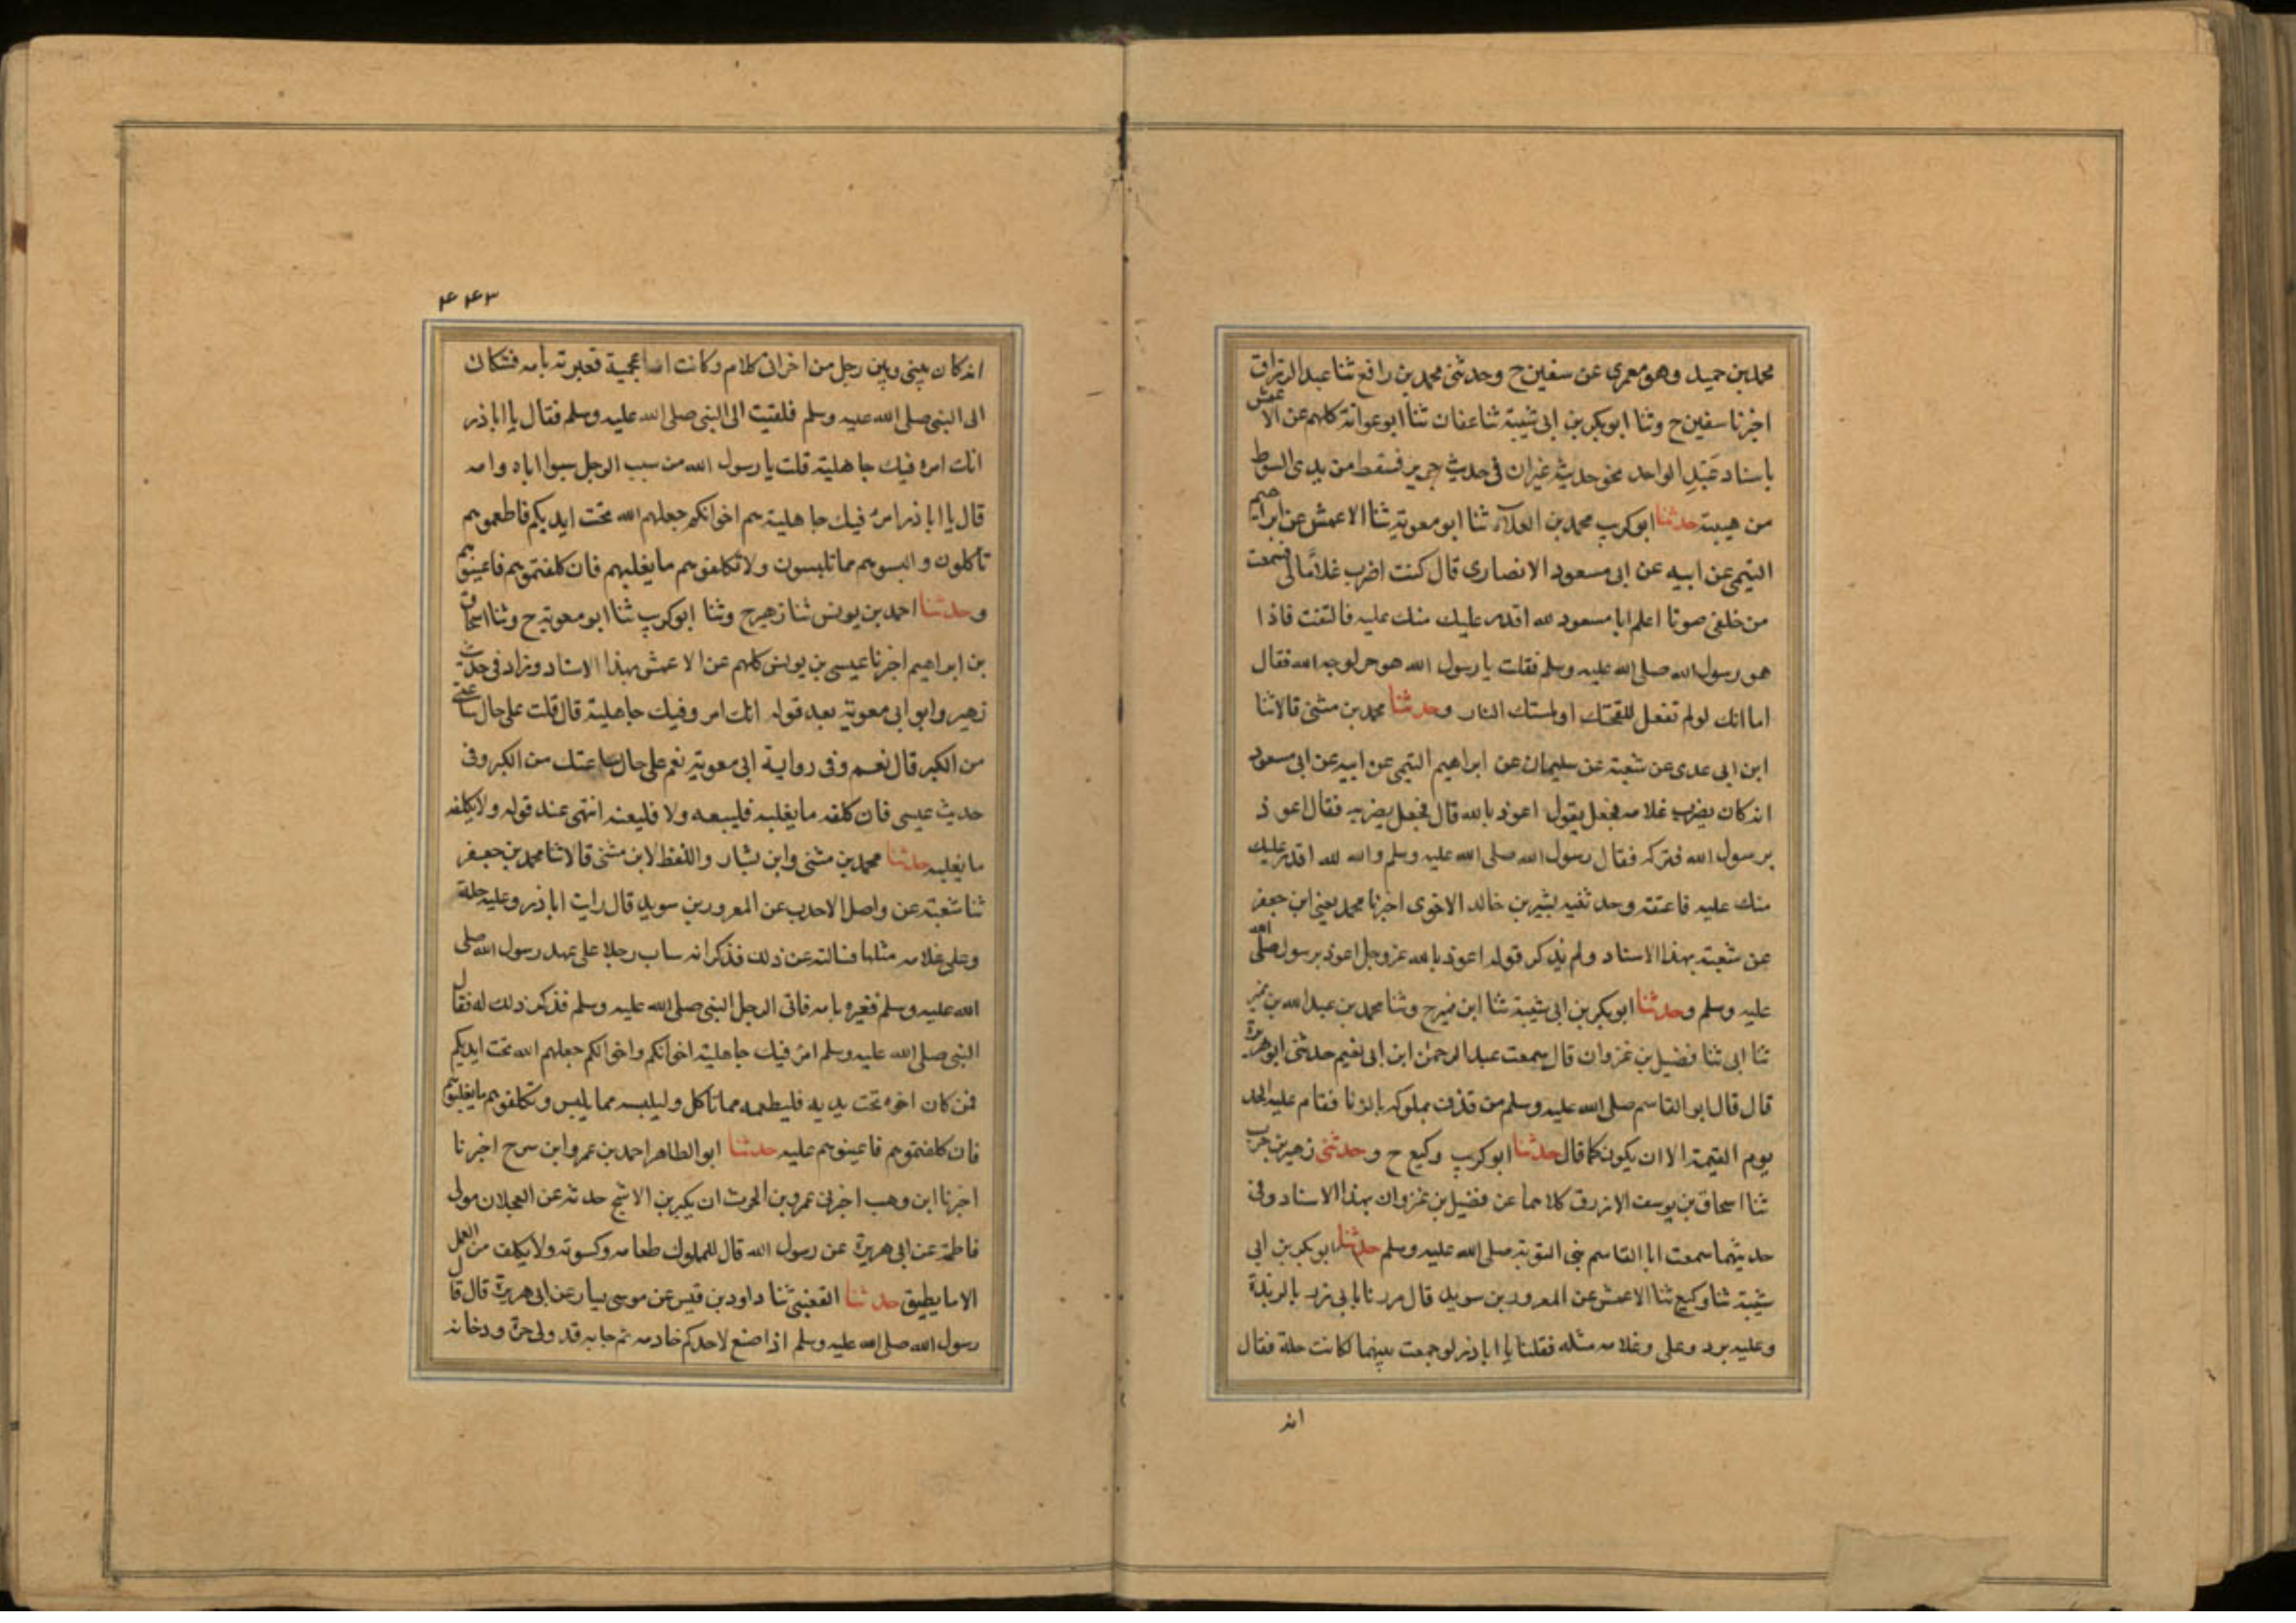 محمد بن حميد وهو معمري عن سفين ح وحدثني محمد بن رافع ثنا عبد الرزاق
اخبرنا سفين ح وثنا ابو بكر بن ابى شيبة ثنا عفان ثنا ابو عوانة كلهم عن الاعمش
باسناد عبد الواحد نحو حديثه غير ان فى حديث جرير فسقط من يدى السوط
من هيبته حدثنا ابو كريب محمد بن العلاء ثنا ابو معوية ثنا الاعمش عن ابراهيم
التيمي عن ابيه عن ابى مسعود الانصارى قال كنت اضرب غلاما لى فسمعت
من خلفى صوتا اعلم ابا مسعود لله اقدر عليك منك عليه فالتفت فاذا
هو رسول الله صلى الله عليه وسلم فقلت يا رسول الله هو حر لوجه الله فقال
اما انك لو لم تفعل للفحتك او لمستك النار وحدثنا محمد بن مثنى قالا ثنا
ابن ابى عدى عن شعبة عن سليمان عن ابراهيم التيمى عن ابيه عن ابى مسعود
انه كان يضرب غلامه فجعل يقول اعوذ بالله قال فجعل يضربه فقال اعوذ
برسول الله فتركه فقال رسول الله صلى الله عليه وسلم والله لله اقدر عليك
منك عليه فاعتقه وحدثنيه بشر بن خالد اخبرنا محمد يعنى ابن جعفر
عن شعبة بهذا الاسناد ولم يذكر قوله اعوذ بالله عز وجل اعوذ برسول الله صلى
عليه وسلم وحدثنا ابو بكر بن ابى شيبة ثنا ابن نمير ح وثنا محمد بن عبد الله بن نمير
ثنا ابى ثنا فضيل بن غزوان قال سمعت عبد الرحمن ابن ابى نعيم حدثنى ابو هريرة
قال قال ابو القاسم صلى الله عليه وسلم من قذف مملوكه بالزنا فقام عليه الحد
يوم القيمة الا ان يكون كما قال حدثنا ابو كريب وكيع ح وحدثنى زهير بن حرب
ثنا اسحاق بن يوسف الازرق كلاهما عن فضيل بن غزوان بهذا الاسناد وفى
حديثهما سمعت ابا القاسم نبى التوبة صلى الله عليه وسلم حدثنا ابو بكر بن ابى
شيبة ثنا وكيع ثنا الاعمش عن المعرور بن سويد قال مررنا بابى ذر بالربذة
وعليه برد وعلى وغلامه مثله فقلنا يا ابا ذر لو جمعت بينهما لكانت حلة فقال
انه
۴۴۳
انه كان بينى وبين رجل من اخوانى كلام وكانت امه اعجمية فعيرته بامه فشكانى
الى النبى صلى الله عليه وسلم فلقيت الى النبى صلى الله عليه وسلم فقال يا ابا ذر
انك امرء فيك جاهلية قلت يا رسول الله من سب الرجل سبوا اباه وامه
قال يا ابا ذر امرء فيك جاهلية هم اخوانكم جعلهم الله تحت ايديكم فاطعموهم
تاكلون والبسوهم مما تلبسون ولا تكلفوهم ما يغلبهم فان كلفتموهم فاعينوهم
وحدثنا احمد بن يونس ثنا زهير ح وثنا ابو كريب ثنا ابو معوية ح وثنا اسحاق
بن ابراهيم اخبرنا عيسى بن يونس كلهم عن الاعمش بهذا الاسناد وزاد فى حديث
زهير وابو ابى معوية بعد قوله انك امرء وفيك جاهلية قال قلت على حال ساعتى
من الكبر قال نعم وفى رواية ابى معوية نعم على حال ساعتك من الكبر وفى
حديث عيسى فان كلفه ما يغلبه فليبعه ولا فليعنه انتهى عند قوله ولا يكلفه
ما يغلبه حدثنا محمد بن مثنى وابن بشار واللفظ لابن مثنى قالا ثنا محمد بن جعفر
ثنا شعبة عن واصل الاحدب عن المعرور بن سويد قال رايت ابا ذر وعليه حلة
وعلى غلامه مثلها فسالته عن ذلك فذكر انه ساب رجلا على عهد رسول الله صلى
الله عليه وسلم فعيره بامه فاتى الرجل النبى صلى الله عليه وسلم فذكر ذلك له فقال
النبى صلى الله عليه وسلم امرء فيك جاهلية اخوانكم واخوانكم جعلهم الله تحت ايديكم
فمن كان اخوه تحت يديه فليطعمه مما تاكل وليلبسه مما يلبس وتكلفوهم ما يغلبهم
فان كلفتموهم فاعينوهم عليه حدثنا ابو الطاهر احمد بن عمرو ابن سرح اخبرنا
اخبرنا ابن وهب اخبرنى عمرو بن الحرث ان بكير بن الاشج حدثه عن العجلان مولى
فاطمة عن ابى هريرة عن رسول الله قال للمملوك طعامه وكسوته ولا يكلف من العمل
الا ما يطيق حدثنا القعنبى ثنا داود بن قيس عن موسى يسار عن ابى هريرة قال قال
رسول الله صلى الله عليه وسلم اذا صنع لاحدكم خادمه ثم جابه قد ولى حره ودخانه